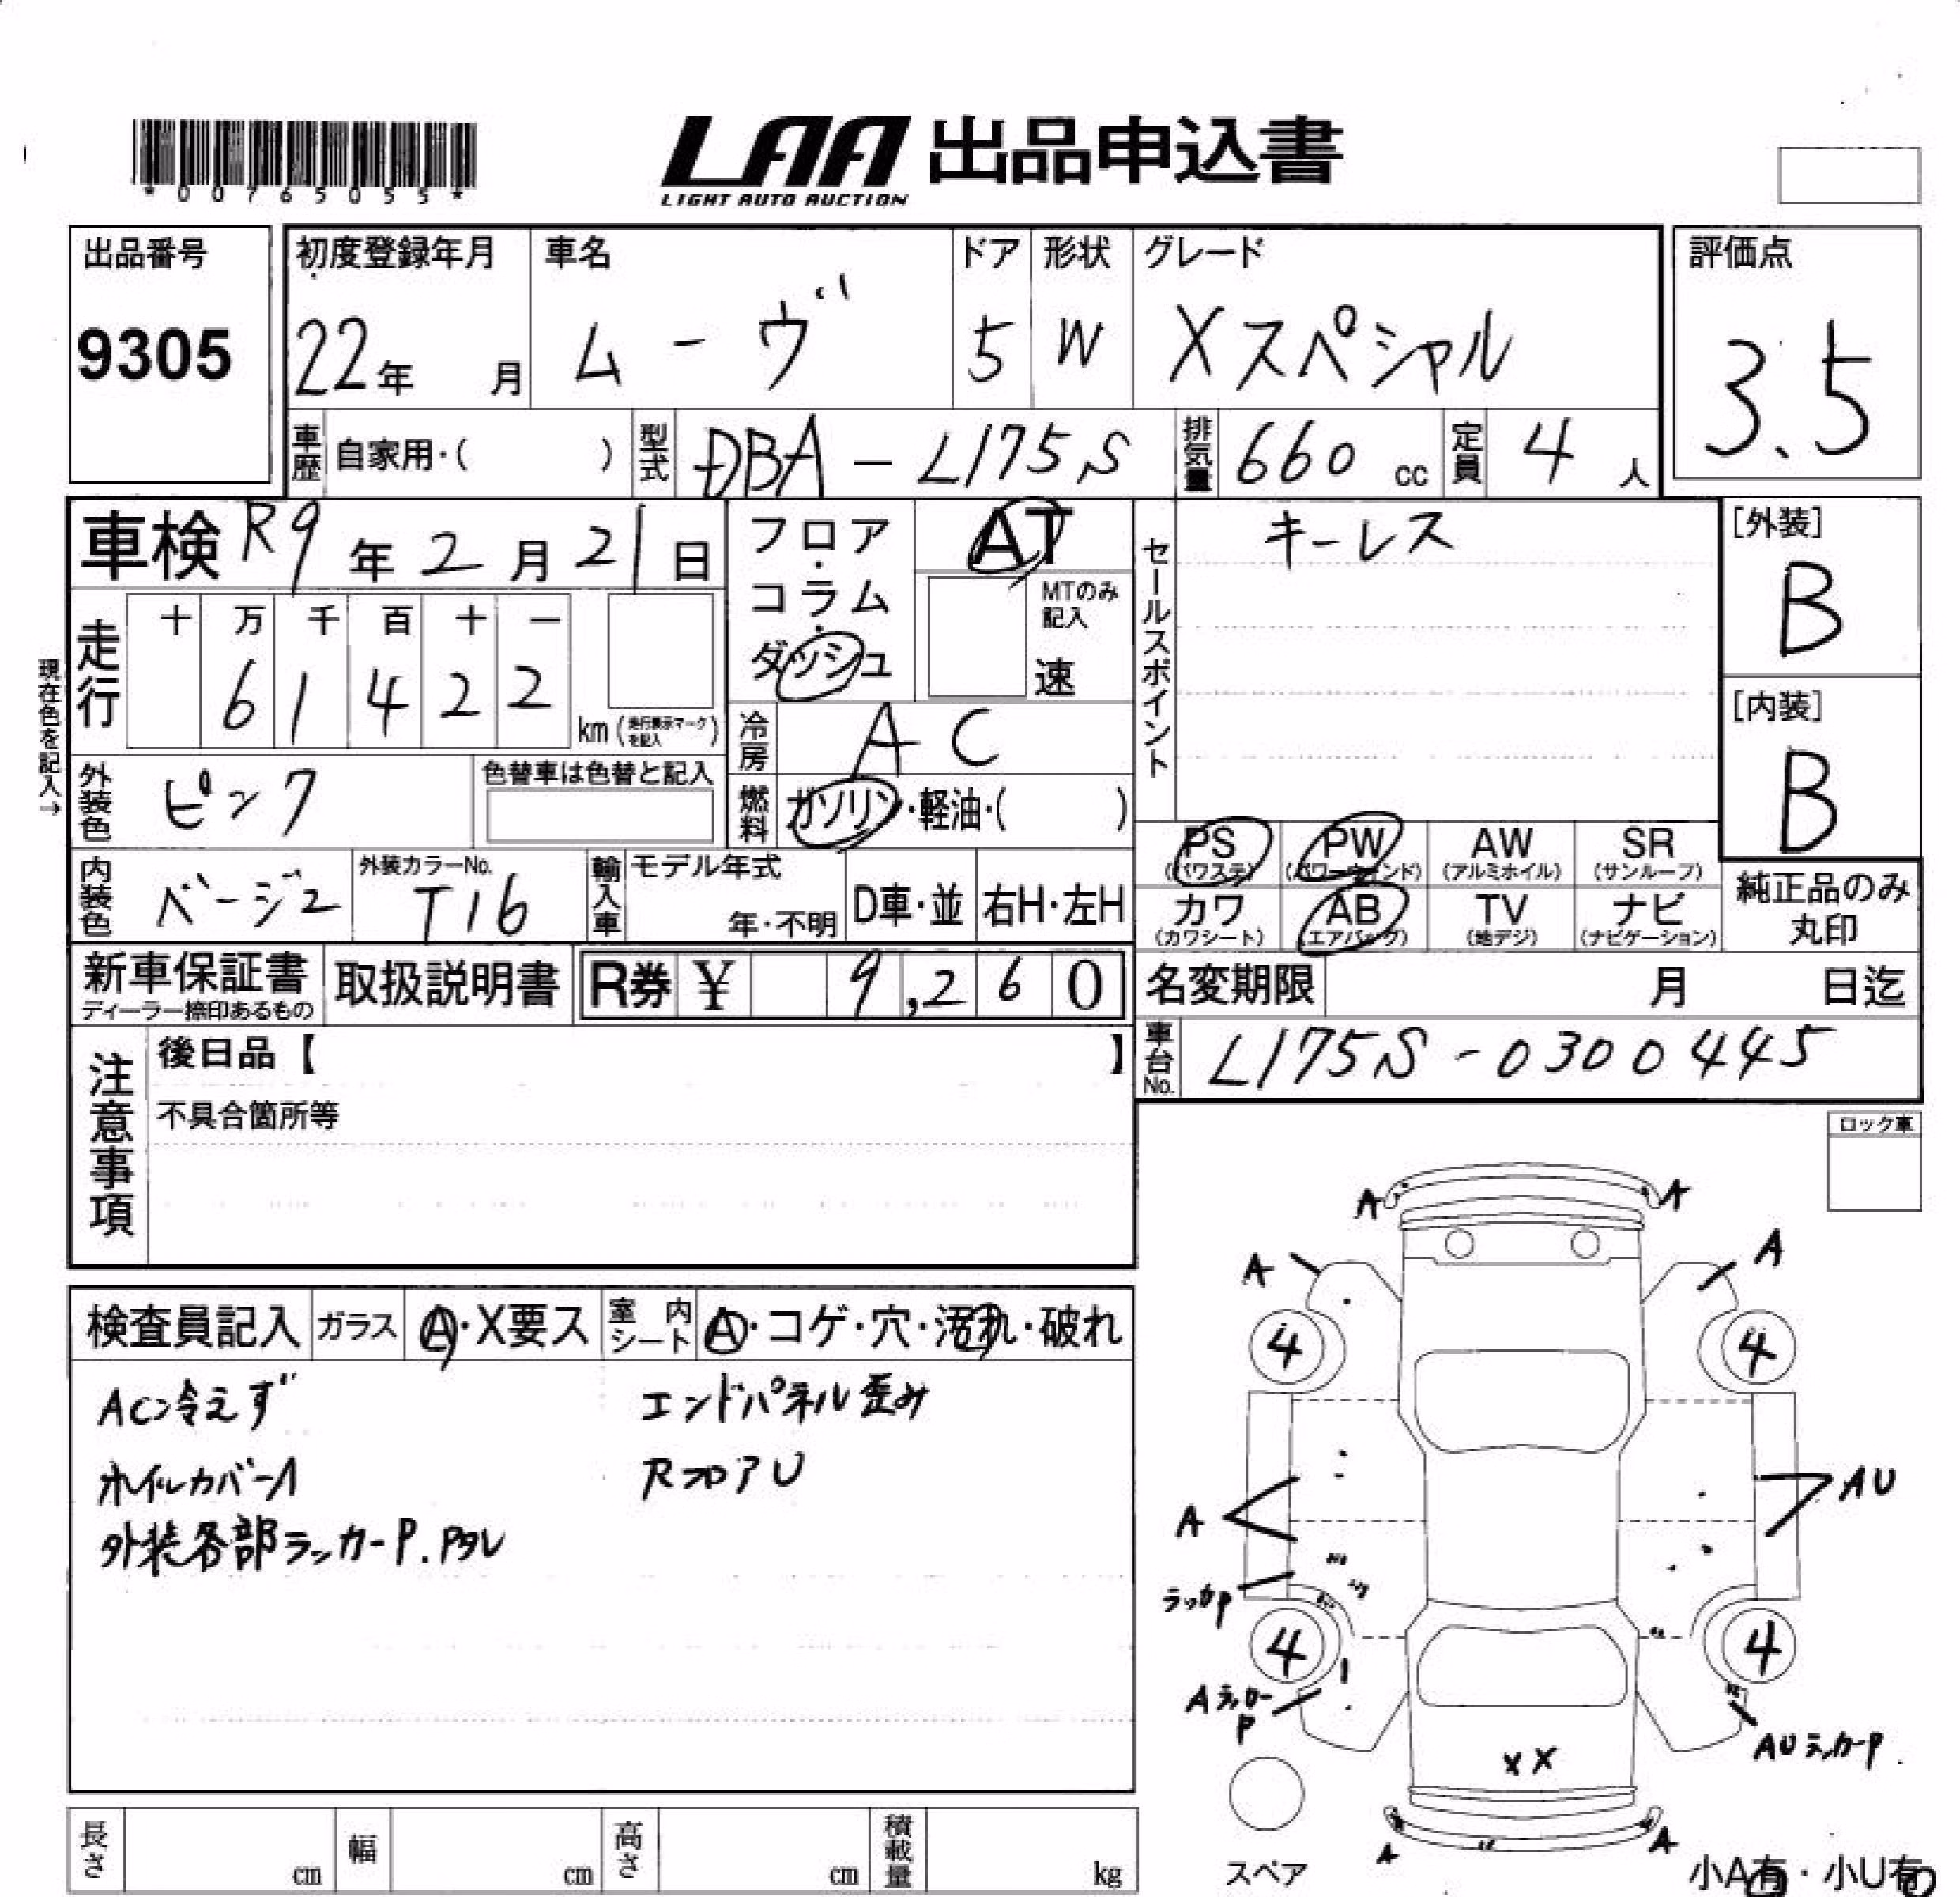 *00765055*
LAA 出品申込書
LIGHT AUTO AUCTION
出品番号
9305
初度登録年月
22年 月
車名
ムーヴ
ドア
5
形状
W
グレード
Xスペシャル
評価点
3.5
車歴 自家用・( )
型式 DBA-L175S
排気量 660 cc
定員 4 人
車検 R9年2月21日
フロア・コラム・ダッシュ
AT
MTのみ記入
速
セールスポイント
キーレス
[外装]
B
[内装]
B
現在色を記入→
走行
十 万 千 百 十 一
6 1 4 2 2
km (走行表示マークを記入)
冷房 AC
外装色 ピンク
色替車は色替と記入
燃料 ガソリン・軽油・( )
内装色 ベージュ
外装カラーNo.
T16
輸入車
モデル年式
年・不明
D車・並
右H・左H
PS (パワステ)
PW (パワーウィンド)
AW (アルミホイル)
SR (サンルーフ)
カワ (カワシート)
AB (エアバック)
TV (地デジ)
ナビ (ナビゲーション)
純正品のみ丸印
新車保証書
ディーラー捺印あるもの
取扱説明書
R券 ¥ 9,260
名変期限 月 日迄
車台No. L175S-0300445
注意事項
後日品【 】
不具合箇所等
ロック車
検査員記入
ガラス A・X要ス
室内シート A・コゲ・穴・汚れ・破れ
AC冷えず
エンドパネル歪み
ホイルカバーA
RフロアU
外装各部ラッカーP.Pタレ
A A
A A
4 4
A AU
ラッカP
4 4
AラッカーP
AUラッカーP.
XX
A A
スペア
小A有・小U有
長さ cm
幅 cm
高さ cm
積載量 kg